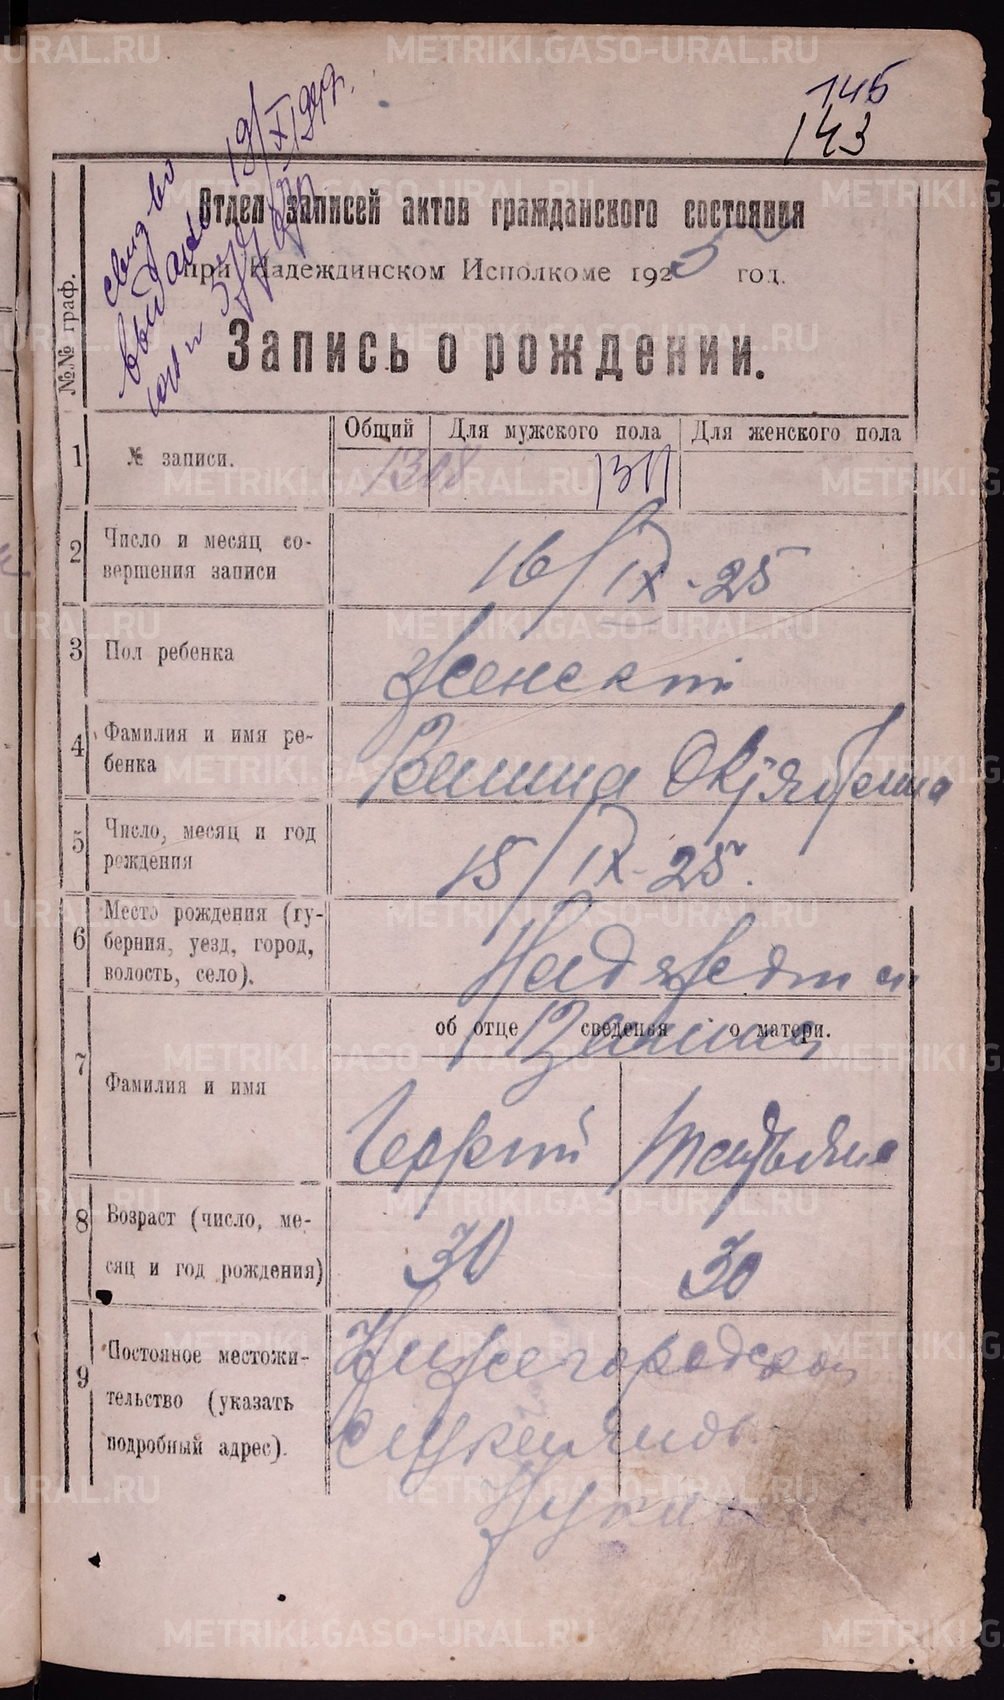 145
143
свид-во
выдано 19/X 1947.
Отдел записей актов гражданского состояния
при Надеждинском Исполкоме 1925 год.
Запись о рождении.
№№ граф.
Общий Для мужского пола Для женского пола
1 № записи. 1308 1311
2 Число и месяц со-
вершения записи
16/IX-25
3 Пол ребенка Женский
4 Фамилия и имя ре-
бенка
Ванина Октябрина
5 Число, месяц и год
рождения
15/IX-25.
6 Место рождения (гу-
берния, уезд, город,
волость, село).
об отце сведения о матери.
Ванина
7 Фамилия и имя
Татьяна
8 Возраст (число, ме-
сяц и год рождения)
30 30
9 Постояное местожи-
тельство (указать
подробный адрес).
Нижегородской
METRIKI.GASO-URAL.RU